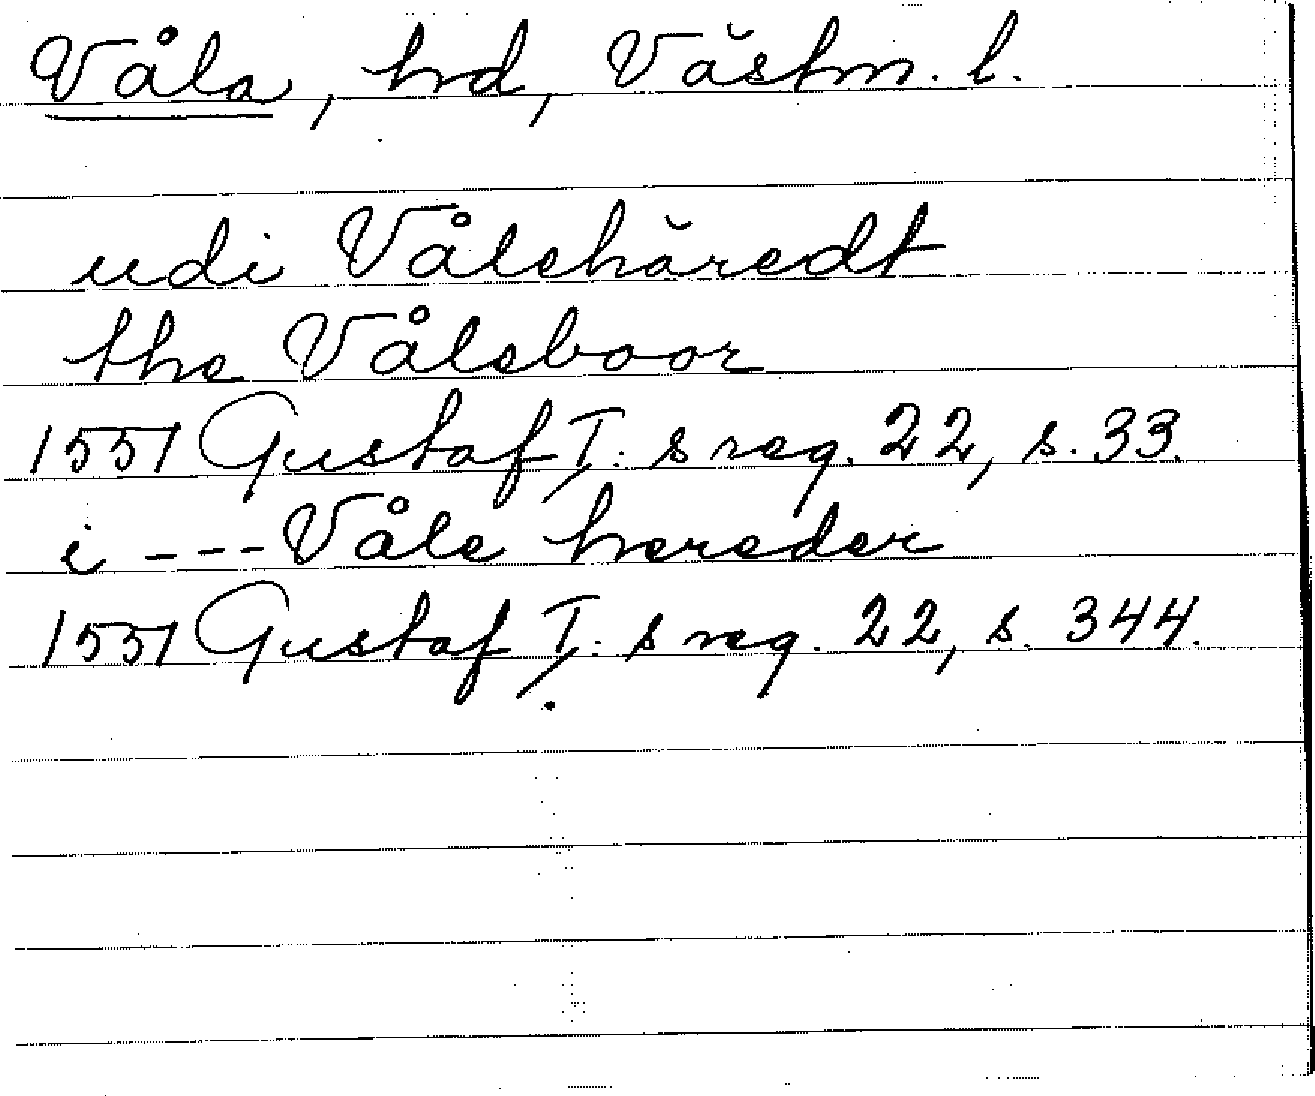 Våla, hd, Västm. l.
udi Vålehäredt
the Våleboor
1551 Gustaf I: s reg. 22, s. 33.
i --- Våle hereder
1551 Gustaf I: s reg. 22, s. 344.